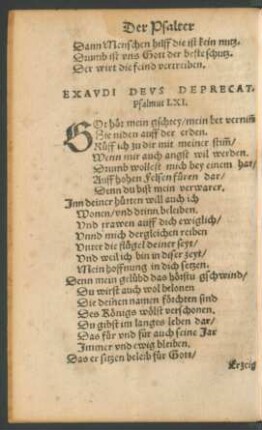 Der Psalter
Dann Menschen hilff die ist kein nutz.
Drumb ist vns Gott der beste schutz.
Der wirt die feind vertreiben.
EXAVDI DEVS DEPRECAT.
Psalmus LXI.
GOt hůt mein gschrey/mein bet vernim̃
Hie niden auff der erden.
Růff ich zu dir mit meiner stim̃/
Wenn mir auch angst wil werden.
Drumb wollest mich bey einem har/
Auff hohen Felsen füren dar/
Denn du bist mein verwarer/
Inn deiner hütten will auch ich
Wonen/vnd drinn beleiben.
Vnd trawen auff dich ewiglich/
Vnnd mich dergleichen reiben
Vnter die flügel deiner seyt/
Vnd weil ich bin in diser zeyt/
Mein hoffnung in dich setzen.
Denn mein gelübd das hörstu gschwind/
Du wirst auch wol belonen
Die deinen namen förchten sind
Des Königs wölst verschonen.
Du gibst im langes leben dar/
Das für vnd für auch seine Jar
Immer vnd ewig bleiben.
Das er sitzen beleib für Gott/
Erzeig